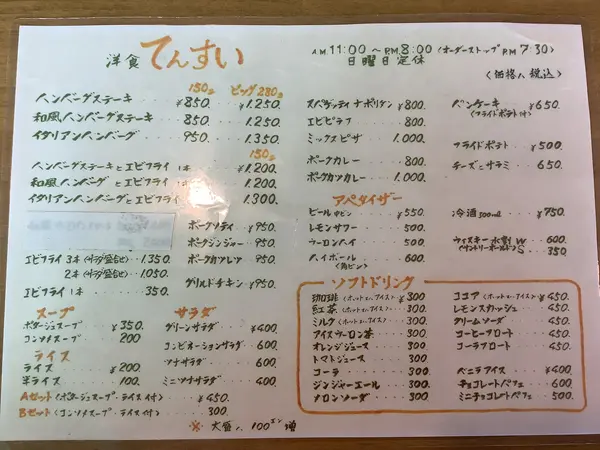 洋食 てんすい
AM 11:00 ～ PM 8:00 (オーダーストップ PM 7:30)
日曜日定休
(価格ハ税込)
150g ビッグ280g
ハンバーグステーキ ¥850. ¥1.250.
和風ハンバーグステーキ 850. 1.250.
イタリアンハンバーグ 950. 1.350.
150g
ハンバーグステーキとエビフライ1本 ¥1.200.
和風ハンバーグとエビフライ1本 1.200.
イタリアンハンバーグとエビフライ 1.300.
ポークソテイ ¥950.
ポークジンジャー ¥950.
ポークカツレツ ¥950.
グリルドチキン ¥950.
エビフライ 3本 1.350.
2本 1.050.
エビフライ 1本 350.
スープ
ポタージュスープ ¥350.
コンソメスープ 200
ライス
ライス ¥200.
半ライス 100.
サラダ
グリーンサラダ ¥400.
コンビネーションサラダ 600.
ツナサラダ 600.
ミニツナサラダ 400.
Aセット (ポタージュスープ・ライス付) ¥450.
Bセット (コンソメスープ・ライス付) 300.
※ 大盛ハ 100エン増
スパゲッティナポリタン ¥800.
エビピラフ 800.
ミックスピザ 1.000.
ポークカレー 800.
ポークカツカレー 1.000.
パンケーキ ¥650.
(フライドポテト付)
フライドポテト ¥500.
チーズとサラミ 650.
アペタイザー
ビール 中ビン ¥550.
レモンサワー 500.
ウーロンハイ 500.
ハイボール 600.
(角ビン)
冷酒 300ml ¥750.
ウィスキー水割 W 600.
(サントリーオールド) S 350.
ソフトドリンク
珈琲 (ホットor.アイス) ¥300
紅茶 (ホットor.アイス) ¥300
ミルク (ホットor.アイス) ¥300
アイスウーロン茶 ¥300
オレンジジュース ¥300
トマトジュース ¥300
コーラ ¥300
ジンジャーエール ¥300
メロンソーダ ¥300
ココア (ホットor.アイス) ¥450.
レモンスカッシュ ¥450.
クリームソーダ ¥450.
コーヒーフロート ¥450.
コーラフロート ¥450.
バニラアイス ¥400.
チョコレートパフェ 600.
ミニチョコレートパフェ 450.